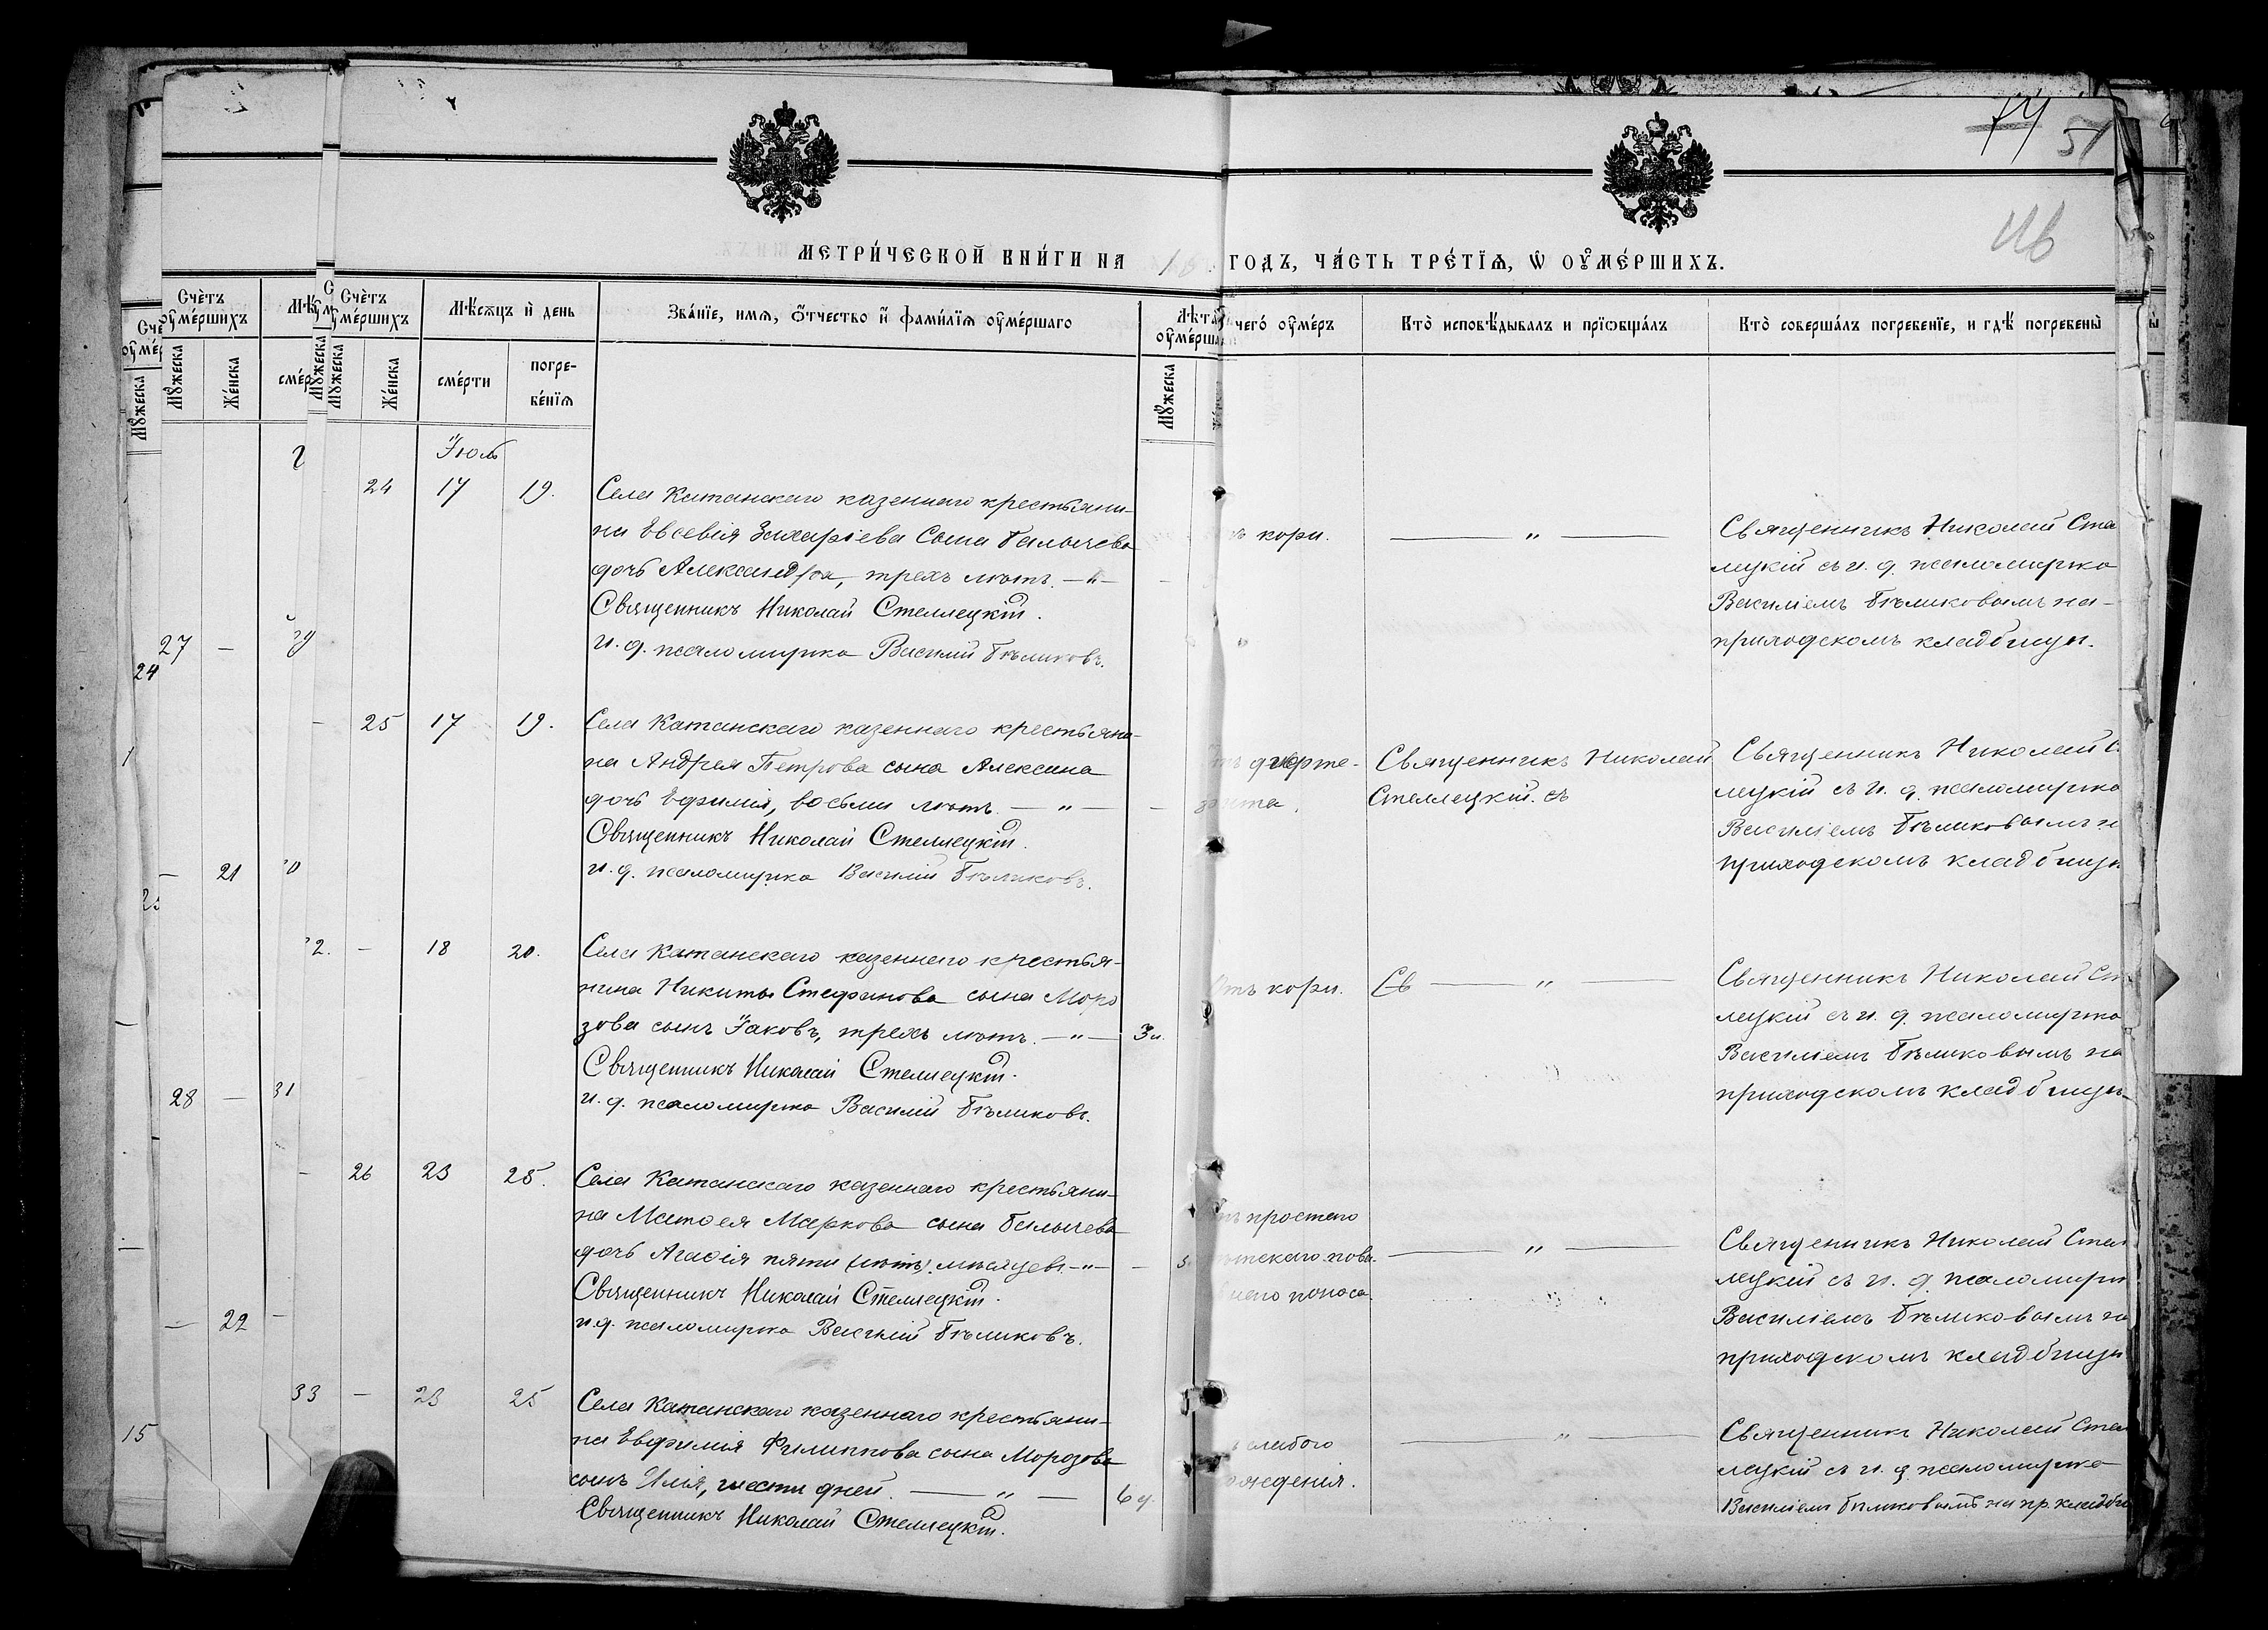 74 51
46
МЕТРИ́ЧЕСКОЙ КНИ́ГИ НА 1 ГОДЪ, ЧА́СТЬ ТРЕ́ТЇѦ, Ѡ҆ ОУ҆МЕ́РШИХЪ.
Счѐтъ оу҆ме́ршихъ
Мѣ́сѧцъ и҆ де́нь
Зва́нїе, и́мѧ, ѻ҆́тчество и҆ фами́лїѧ оу҆ме́ршаго
Лѣта оу҆ме́рша
чегѡ̀ оу҆ме́ръ
Кто̀ исповѣ́дывалъ и прїѡбща́лъ
Кто̀ соверша́лъ погребе́нїе, и гдѣ̀ погребены̀
Мꙋ́жеска
Же́нска
сме́рти
погре-
бе́нїѧ
Мꙋ́жеска
Іюль
24 17 19.
Села Катанскаго казеннаго крестьяни-
на Евсевія Захаріева Сына Балычева
дочь Александра, трехъ лѣтъ. — " —
Священникъ Николай Стеллецкій.
И. д. псаломщика Василій Бѣликовъ.
кори.
— " —
Священникъ Николай Сте
лецкій съ и. д. псаломщика
Василіемъ Бѣликовымъ на-
приходскомъ кладбищѣ.
— 25 17 19.
Села Катанскаго казеннаго крестьяни-
на Андрея Петрова сына Алексина
дочь Ефимія, восьми лѣтъ. — " —
Священникъ Николай Стеллецкій.
и. д. псаломщика Василій Бѣликовъ.
Священникъ Николай
Стеллецкій. съ
Священникъ Николай С
лецкій съ и. д. псаломщика
Василіемъ Бѣликовымъ н
приходскомъ кладбищѣ
32. — 18 20.
Села Катанскаго казеннаго крестья-
нина Никиты Стефанова сына Моро
зова сынъ Іаковъ, трехъ лѣтъ. — " — 3 л.
Священникъ Николай Стеллецкій.
и. д. псаломщика Василій Бѣликовъ.
Отъ кори.
Св — " —
Священникъ Николай Ст
лецкій съ и. д. псаломщика
Василіемъ Бѣликовымъ на
приходскомъ кладбищѣ
— 26 23 25.
Села Катанскаго казеннаго крестьяни-
на Матѳея Маркова сына Балычева
дочь Агаѳія пяти (лѣтъ). мѣсяцевъ — " — —
Священникъ Николай Стеллецкій.
и. д. псаломщика Василій Бѣликовъ.
простаго
поноса
— " —
Священникъ Николай Стел
лецкій съ и. д. псаломщи
Василіемъ Бѣликовымъ на
приходскомъ кладбищѣ
33 — 23 25
Села Катанскаго казеннаго крестьяни-
на Евфимія Филиппова сына Морозова
сынъ Илья, шести дней. — " — 6 д.
Священникъ Николай Стеллецкій.
слабого
рожденія.
— " —
Священникъ Николай Стел
лецкій съ и. д. псаломщика
Василіемъ Бѣликовымъ на пр. кладби
27 —
24
— 21
28 — 31
— 22 —
15